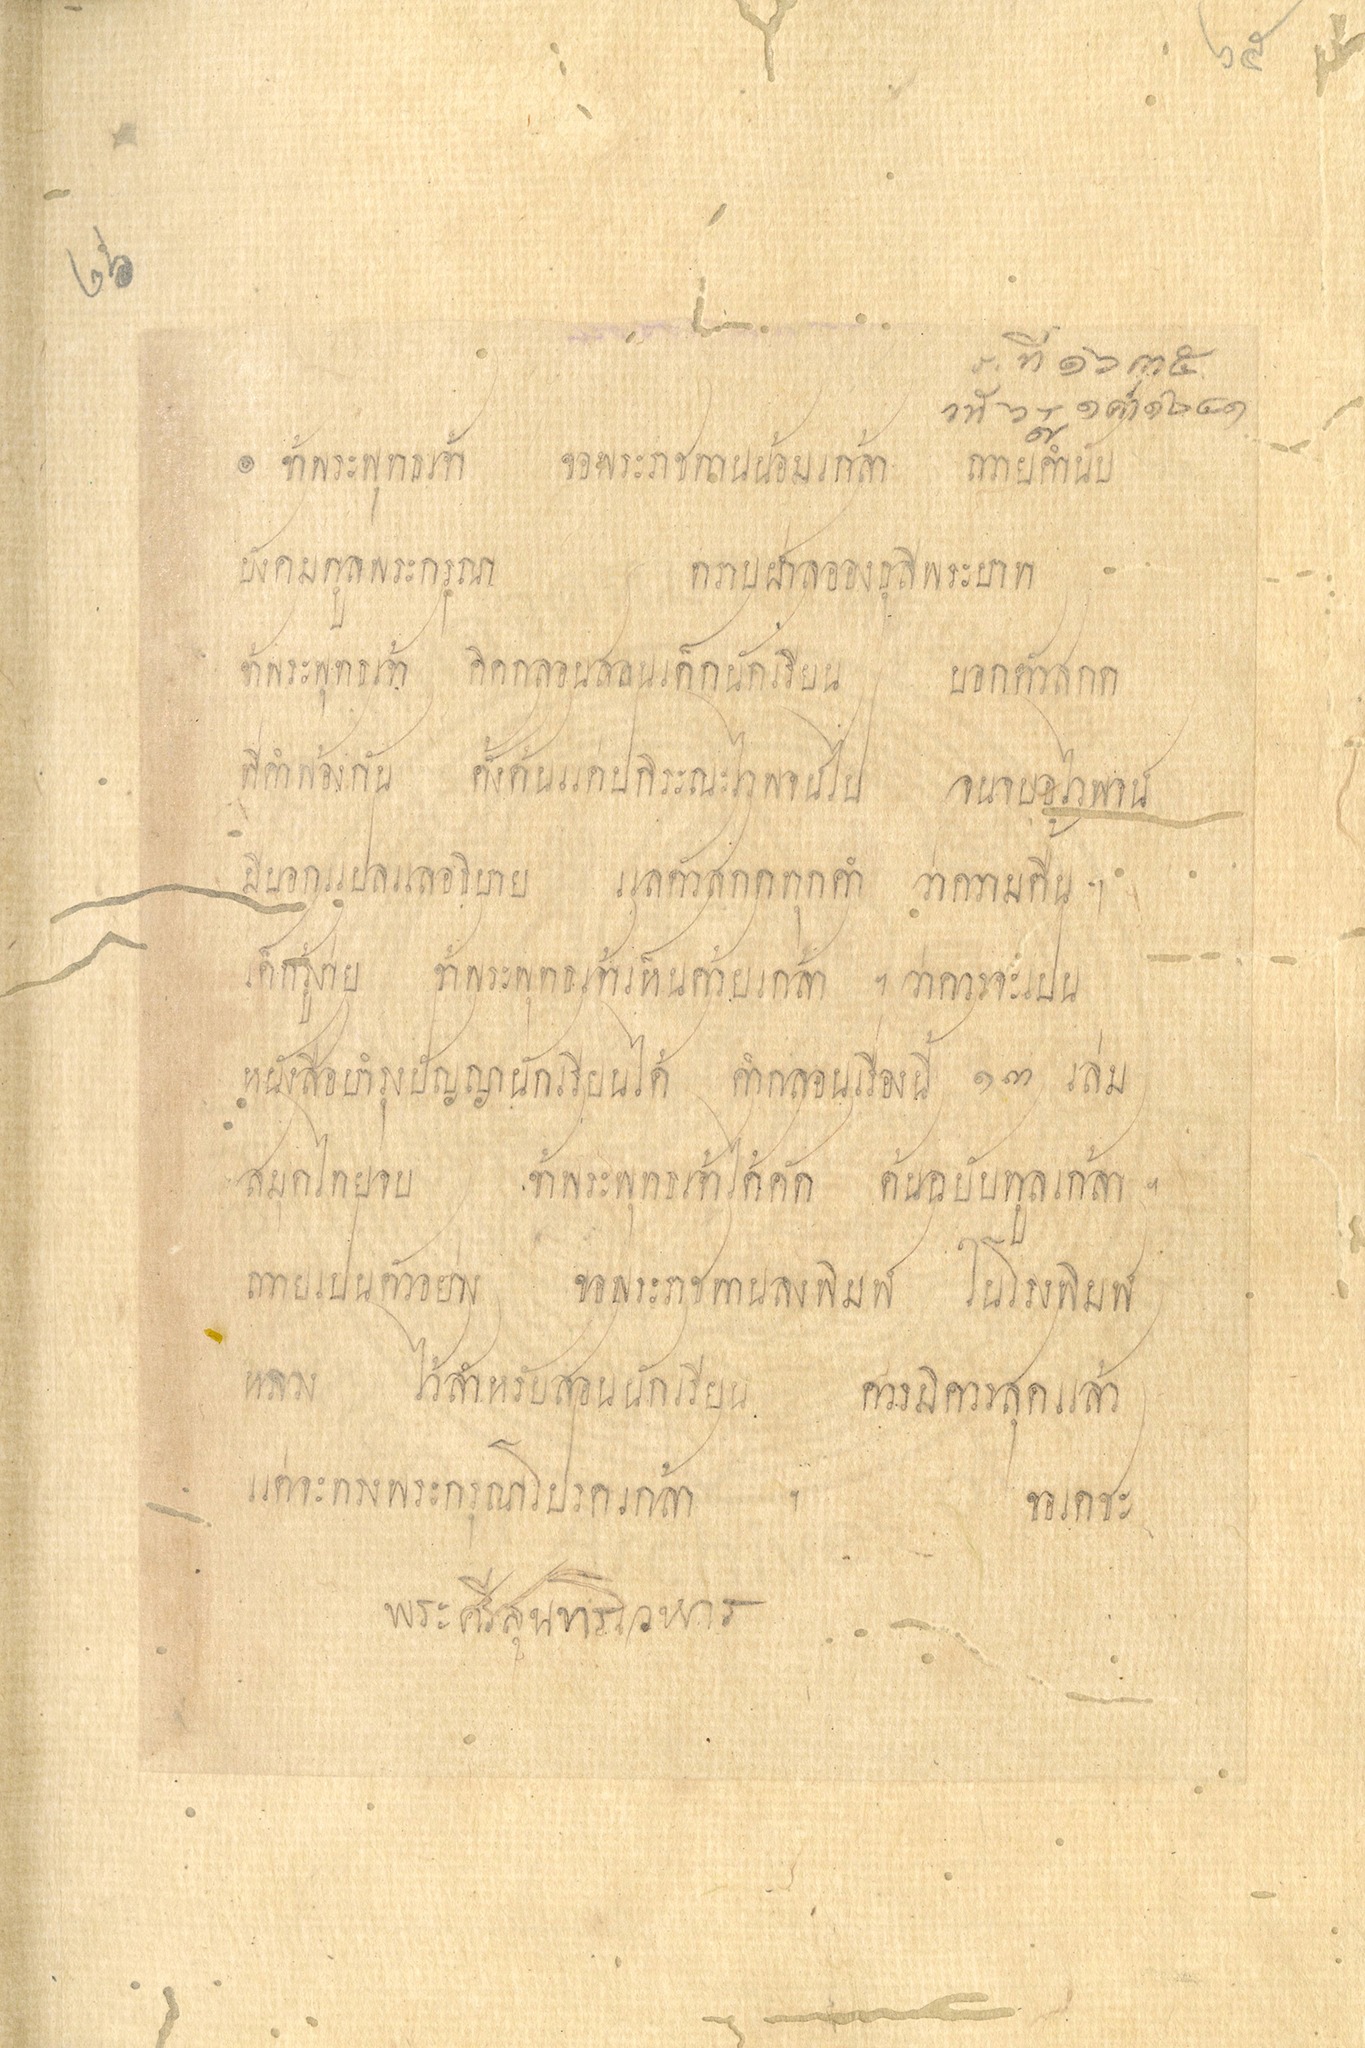 ๖๕
๒๖
ร. ที่ ๑๖๓๕
๏ ข้าพระพุทธเจ้า ขอพระราชทานน้อมเกล้า ถวายคำนับ
บังคมทูลพระกรุณา ทราบฝ่าลอองธุลีพระบาท
ข้าพระพุทธเจ้า คิดกลอนสอนเด็กนักเรียน บอกตัวสกด
ที่คำพ้องกัน ตั้งต้นแต่ปกิระณะไวพจน์ไป จนจบ
มีบอกแปลแลอธิบาย แลตัวสกดทุกคำ ว่าความตื้น ๆ
เด็กรู้ง่าย ข้าพระพุทธเจ้าเห็นด้วยเกล้า ฯ ว่าควรจะเปน
หนังสือบำรุงปัญญานักเรียนได้ คำกลอนเรื่องนี้ ๑๓ เล่ม
สมุดไทยจบ ข้าพระพุทธเจ้าได้คัด ต้นฉบับทูลเกล้า ฯ
ถวายเปนตัวอย่าง ขอพระราชทานลงพิมพ์ ในโรงพิมพ์
หลวง ไว้สำหรับสอนนักเรียน ควรมิควรสุดแล้ว
แต่จะทรงพระกรุณาโปรดเกล้า ฯ ขอเดชะ
พระศรีสุนทรโวหาร